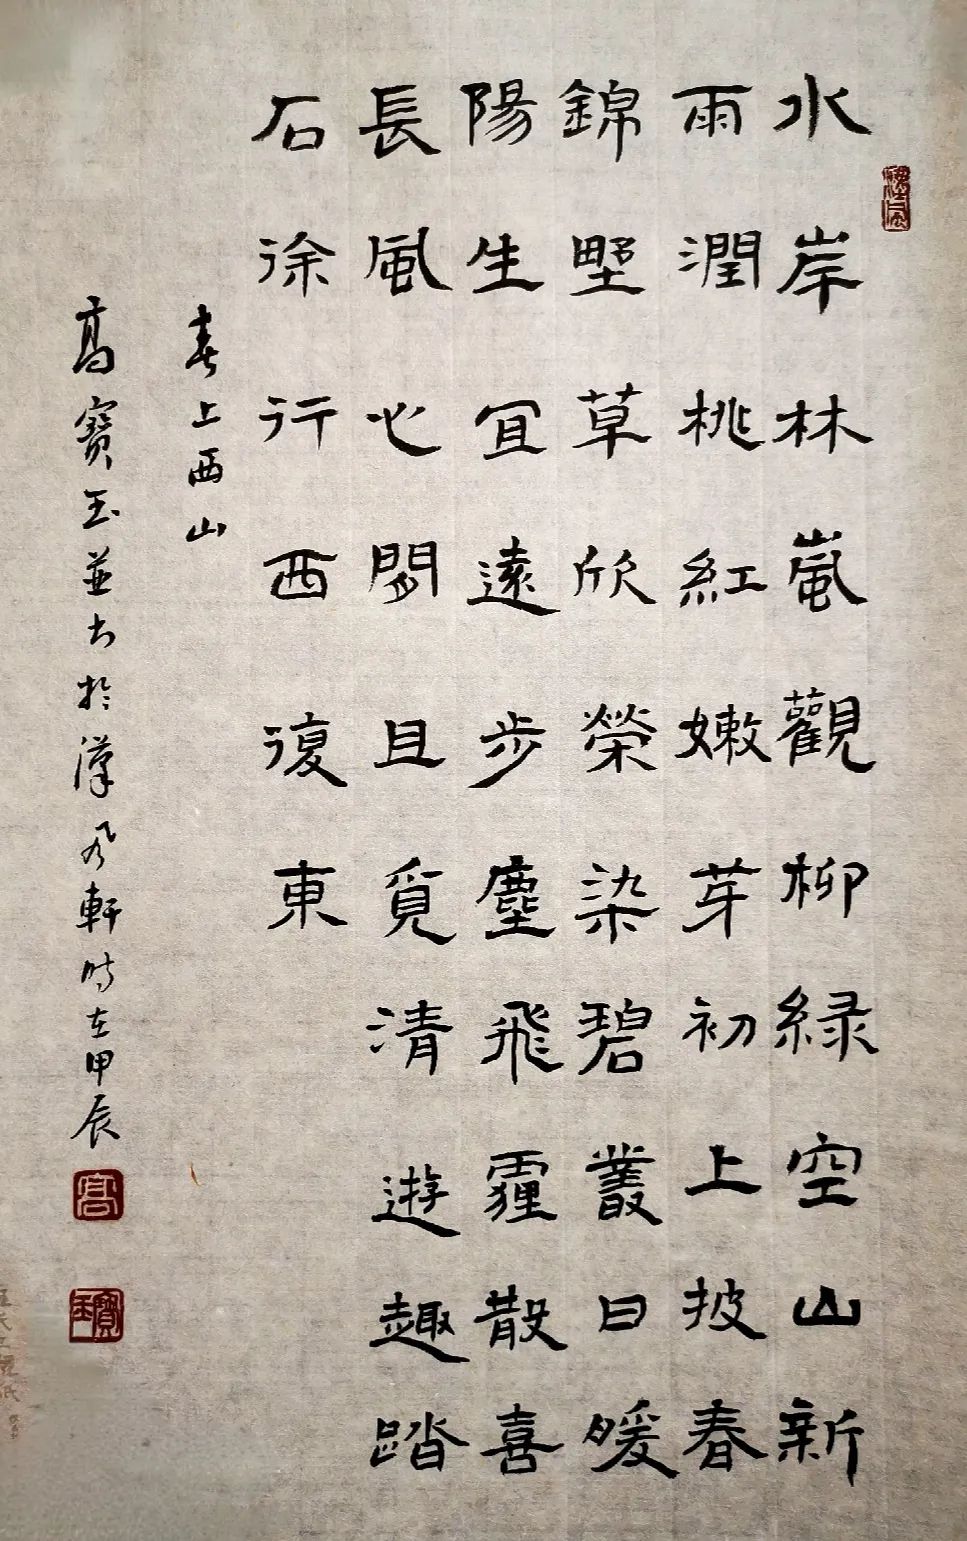 水岸林嵐觀柳緑空山新
雨潤桃紅嫩芽初上披春
錦野草欣榮染碧叢日暖
陽生宜遠步塵飛霾散喜
長風心閑且覓清遊趣踏
石徐行西復東
春上西山
高寶玉並书於漢风軒时在甲辰
高
寶玉